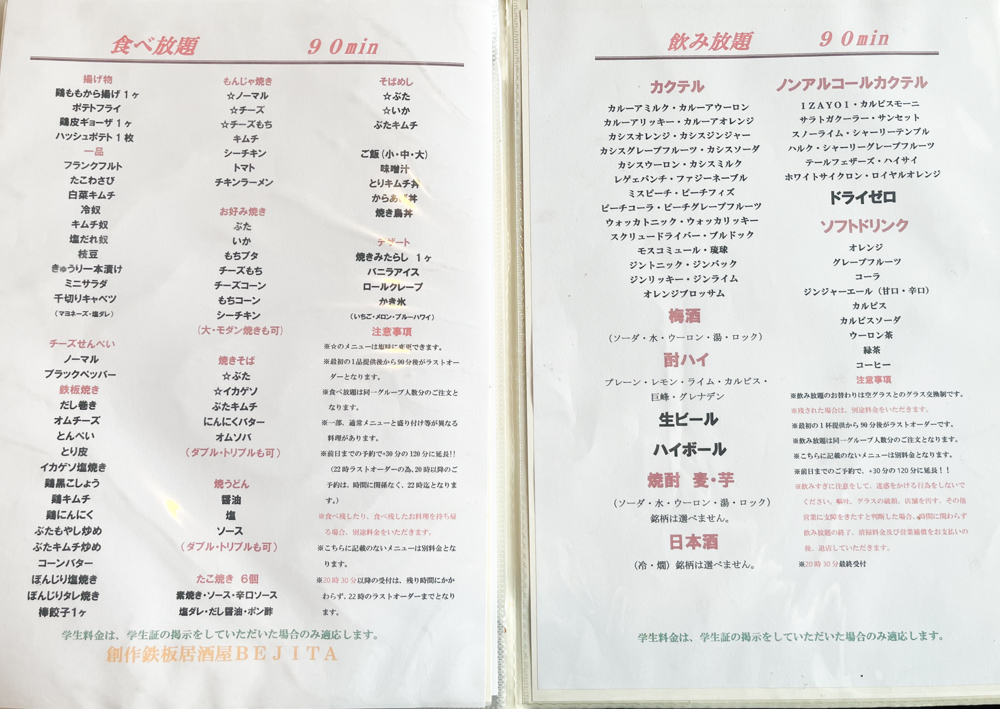 食べ放題 90min
揚げ物
鶏ももから揚げ 1ヶ
ポテトフライ
鶏皮ギョーザ 1ヶ
ハッシュポテト 1枚
一品
フランクフルト
たこわさび
白菜キムチ
冷奴
キムチ奴
塩だれ奴
枝豆
きゅうり一本漬け
ミニサラダ
千切りキャベツ
(マヨネーズ・塩ダレ)
チーズせんべい
ノーマル
ブラックペッパー
鉄板焼き
だし巻き
オムチーズ
とんぺい
とり皮
イカゲソ塩焼き
鶏黒こしょう
鶏キムチ
鶏にんにく
ぶたもやし炒め
ぶたキムチ炒め
コーンバター
ぼんじり塩焼き
ぼんじりタレ焼き
棒餃子1ヶ
もんじゃ焼き
☆ノーマル
☆チーズ
☆チーズもち
キムチ
シーチキン
トマト
チキンラーメン
お好み焼き
ぶた
いか
もちブタ
チーズもち
チーズコーン
もちコーン
シーチキン
(大・モダン焼きも可)
焼きそば
☆ぶた
☆イカゲソ
ぶたキムチ
にんにくバター
オムソバ
(ダブル・トリプルも可)
焼うどん
醤油
塩
ソース
(ダブル・トリプルも可)
たこ焼き 6個
素焼き・ソース・辛口ソース
塩ダレ・だし醤油・ポン酢
そばめし
☆ぶた
☆いか
ぶたキムチ
ご飯(小・中・大)
味噌汁
とりキムチ丼
からあげ丼
焼き鳥丼
デザート
焼きみたらし 1ヶ
バニラアイス
ロールクレープ
かき氷
(いちご・メロン・ブルーハワイ)
注意事項
※☆のメニューは塩味に変更できます。
※最初の1品提供後から90分後がラストオー
ダーとなります。
※食べ放題は同一グループ人数分のご注文と
なります。
※一部、通常メニューと盛り付け等が異なる
料理があります。
※前日までの予約で+30分の120分に延長!!
(22時ラストオーダーの為、20時以降のご
予約は、時間に関係なく、22時迄となりま
す。)
※食べ残したり、食べ残したお料理を持ち帰
る場合、別途料金をいただきます。
※こちらに記載のないメニューは別料金とな
ります。
※20時30分以降の受付は、残り時間にかか
わらず、22時のラストオーダーまでとなり
ます。
学生料金は、学生証の掲示をしていただいた場合のみ適応します。
創作鉄板居酒屋BEJITA
飲み放題 90min
カクテル
カルーアミルク・カルーアウーロン
カルーアリッキー・カルーアオレンジ
カシスオレンジ・カシスジンジャー
カシスグレープフルーツ・カシスソーダ
カシスウーロン・カシスミルク
レゲェパンチ・ファジーネーブル
ミスピーチ・ピーチフィズ
ピーチコーラ・ピーチグレープフルーツ
ウォッカトニック・ウォッカリッキー
スクリュードライバー・ブルドック
モスコミュール・琉球
ジントニック・ジンバック
ジンリッキー・ジンライム
オレンジブロッサム
梅酒
(ソーダ・水・ウーロン・湯・ロック)
酎ハイ
プレーン・レモン・ライム・カルピス・
巨峰・グレナデン
生ビール
ハイボール
焼酎 麦・芋
(ソーダ・水・ウーロン・湯・ロック)
銘柄は選べません。
日本酒
(冷・燗)銘柄は選べません。
ノンアルコールカクテル
IZAYOI・カルピスモーニ
サラトガクーラー・サンセット
スノーライム・シャーリーテンプル
ハルク・シャーリーグレープフルーツ
テールフェザーズ・ハイサイ
ホワイトサイクロン・ロイヤルオレンジ
ドライゼロ
ソフトドリンク
オレンジ
グレープフルーツ
コーラ
ジンジャーエール(甘口・辛口)
カルピス
カルピスソーダ
ウーロン茶
緑茶
コーヒー
注意事項
※飲み放題のお替わりは空グラスとのグラス交換制です。
※残された場合は、別途料金をいただきます。
※最初の1杯提供から90分後がラストオーダーです。
※飲み放題は同一グループ人数分のご注文となります。
※こちらに記載のないメニューは別料金となります。
※前日までのご予約で、+30分の120分に延長!!
※飲みすぎに注意をして、迷惑をかける行為をしないで
ください。嘔吐、グラスの破損、店舗を汚す、その他
営業に支障をきたすと判断した場合、時間に関わらず
飲み放題の終了、清掃料金及び営業補償をお支払いの
後、退店していただきます。
※20時30分最終受付
学生料金は、学生証の掲示をしていただいた場合のみ適応します。